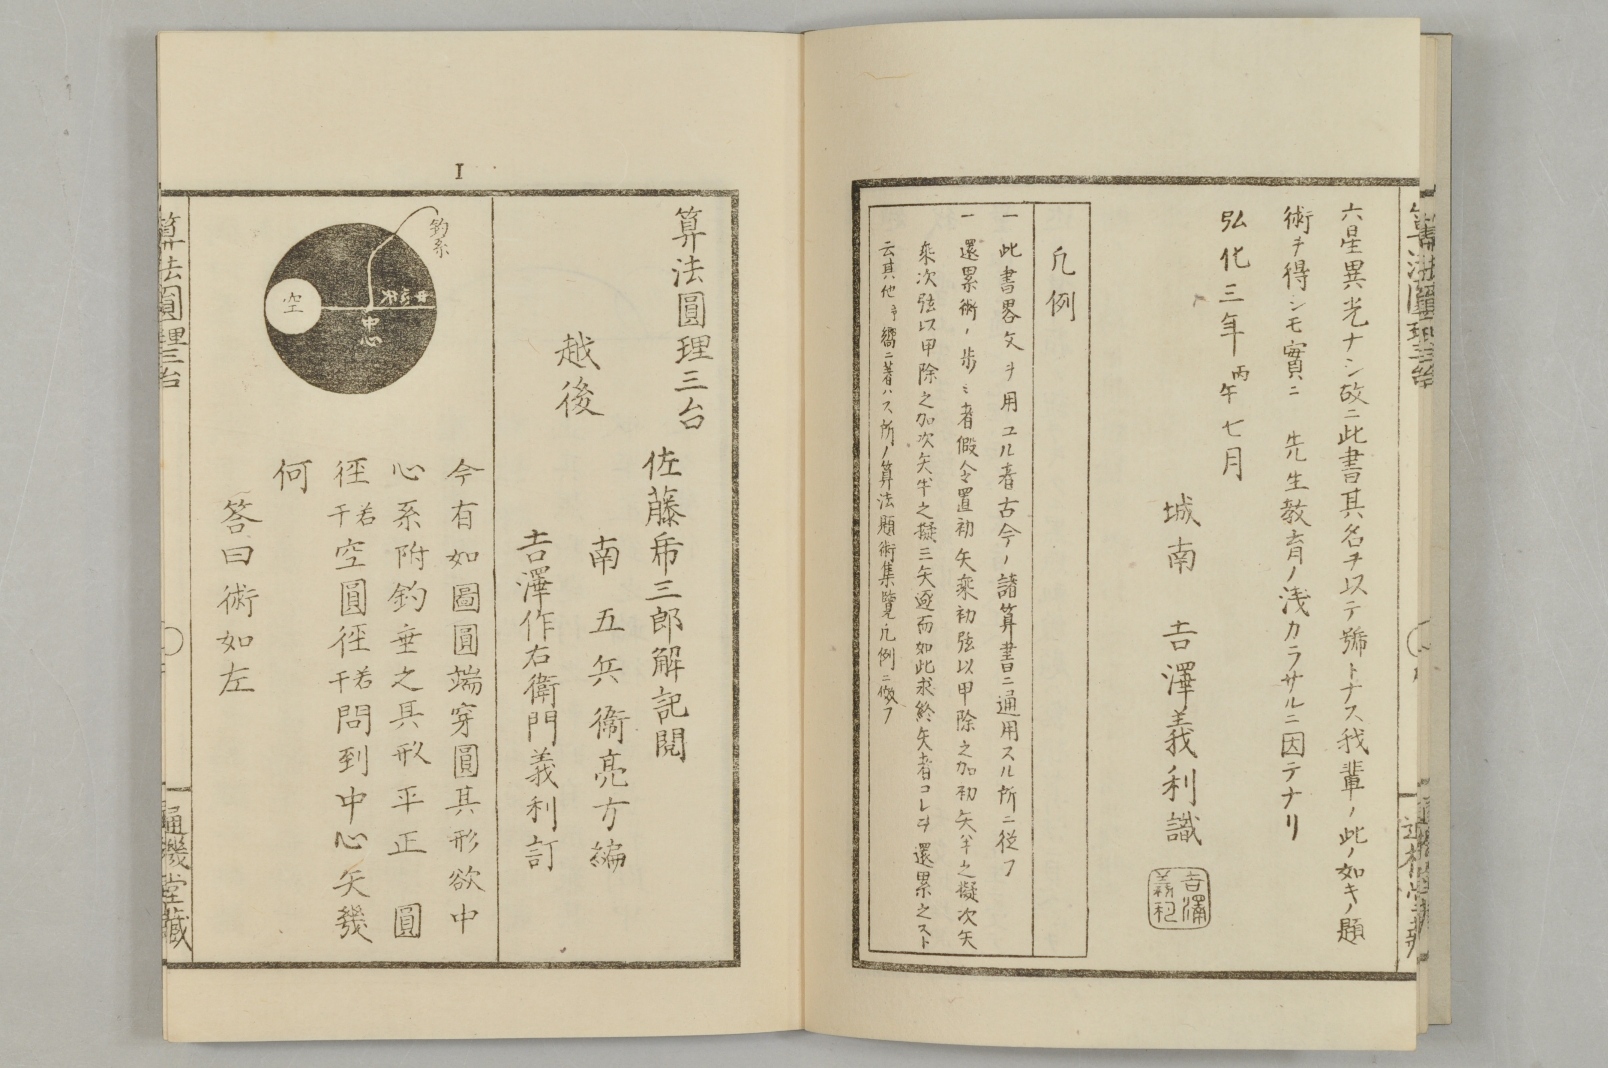 六星異光ナシ故ニ此書其名ヲ以テ號トナス我輩ノ此ノ如キノ題
術ヲ得シモ實ニ 先生教育ノ浅カラサルニ因テナリ
弘化三年丙午七月
城南 吉澤義利識
吉澤
義利
凡例
一 此書畧文ヲ用ユル者古今ノ諸算書ニ通用スル所ニ従フ
一 還累術ノ歩ミ者假令置初矢乘初弦以甲除之加初矢半之擬次矢
乘次弦以甲除之加次矢半之擬三矢逐而如此求終矢者コレヲ還累之スト
云其他ハ嚮ニ著ハス所ノ算法題術集覽凡例ニ倣フ
I
算法圓理三台
佐藤希三郎解記閲
越後
南五兵衞亮方編
吉澤作右衛門義利訂
釣糸
空
忠
今有如圖圓端穿圓其形欲中
心系附釣垂之其形平正 圓
徑若干空圓徑若干問到中心矢幾
何
答曰術如左
算法圓理三台
通機堂藏